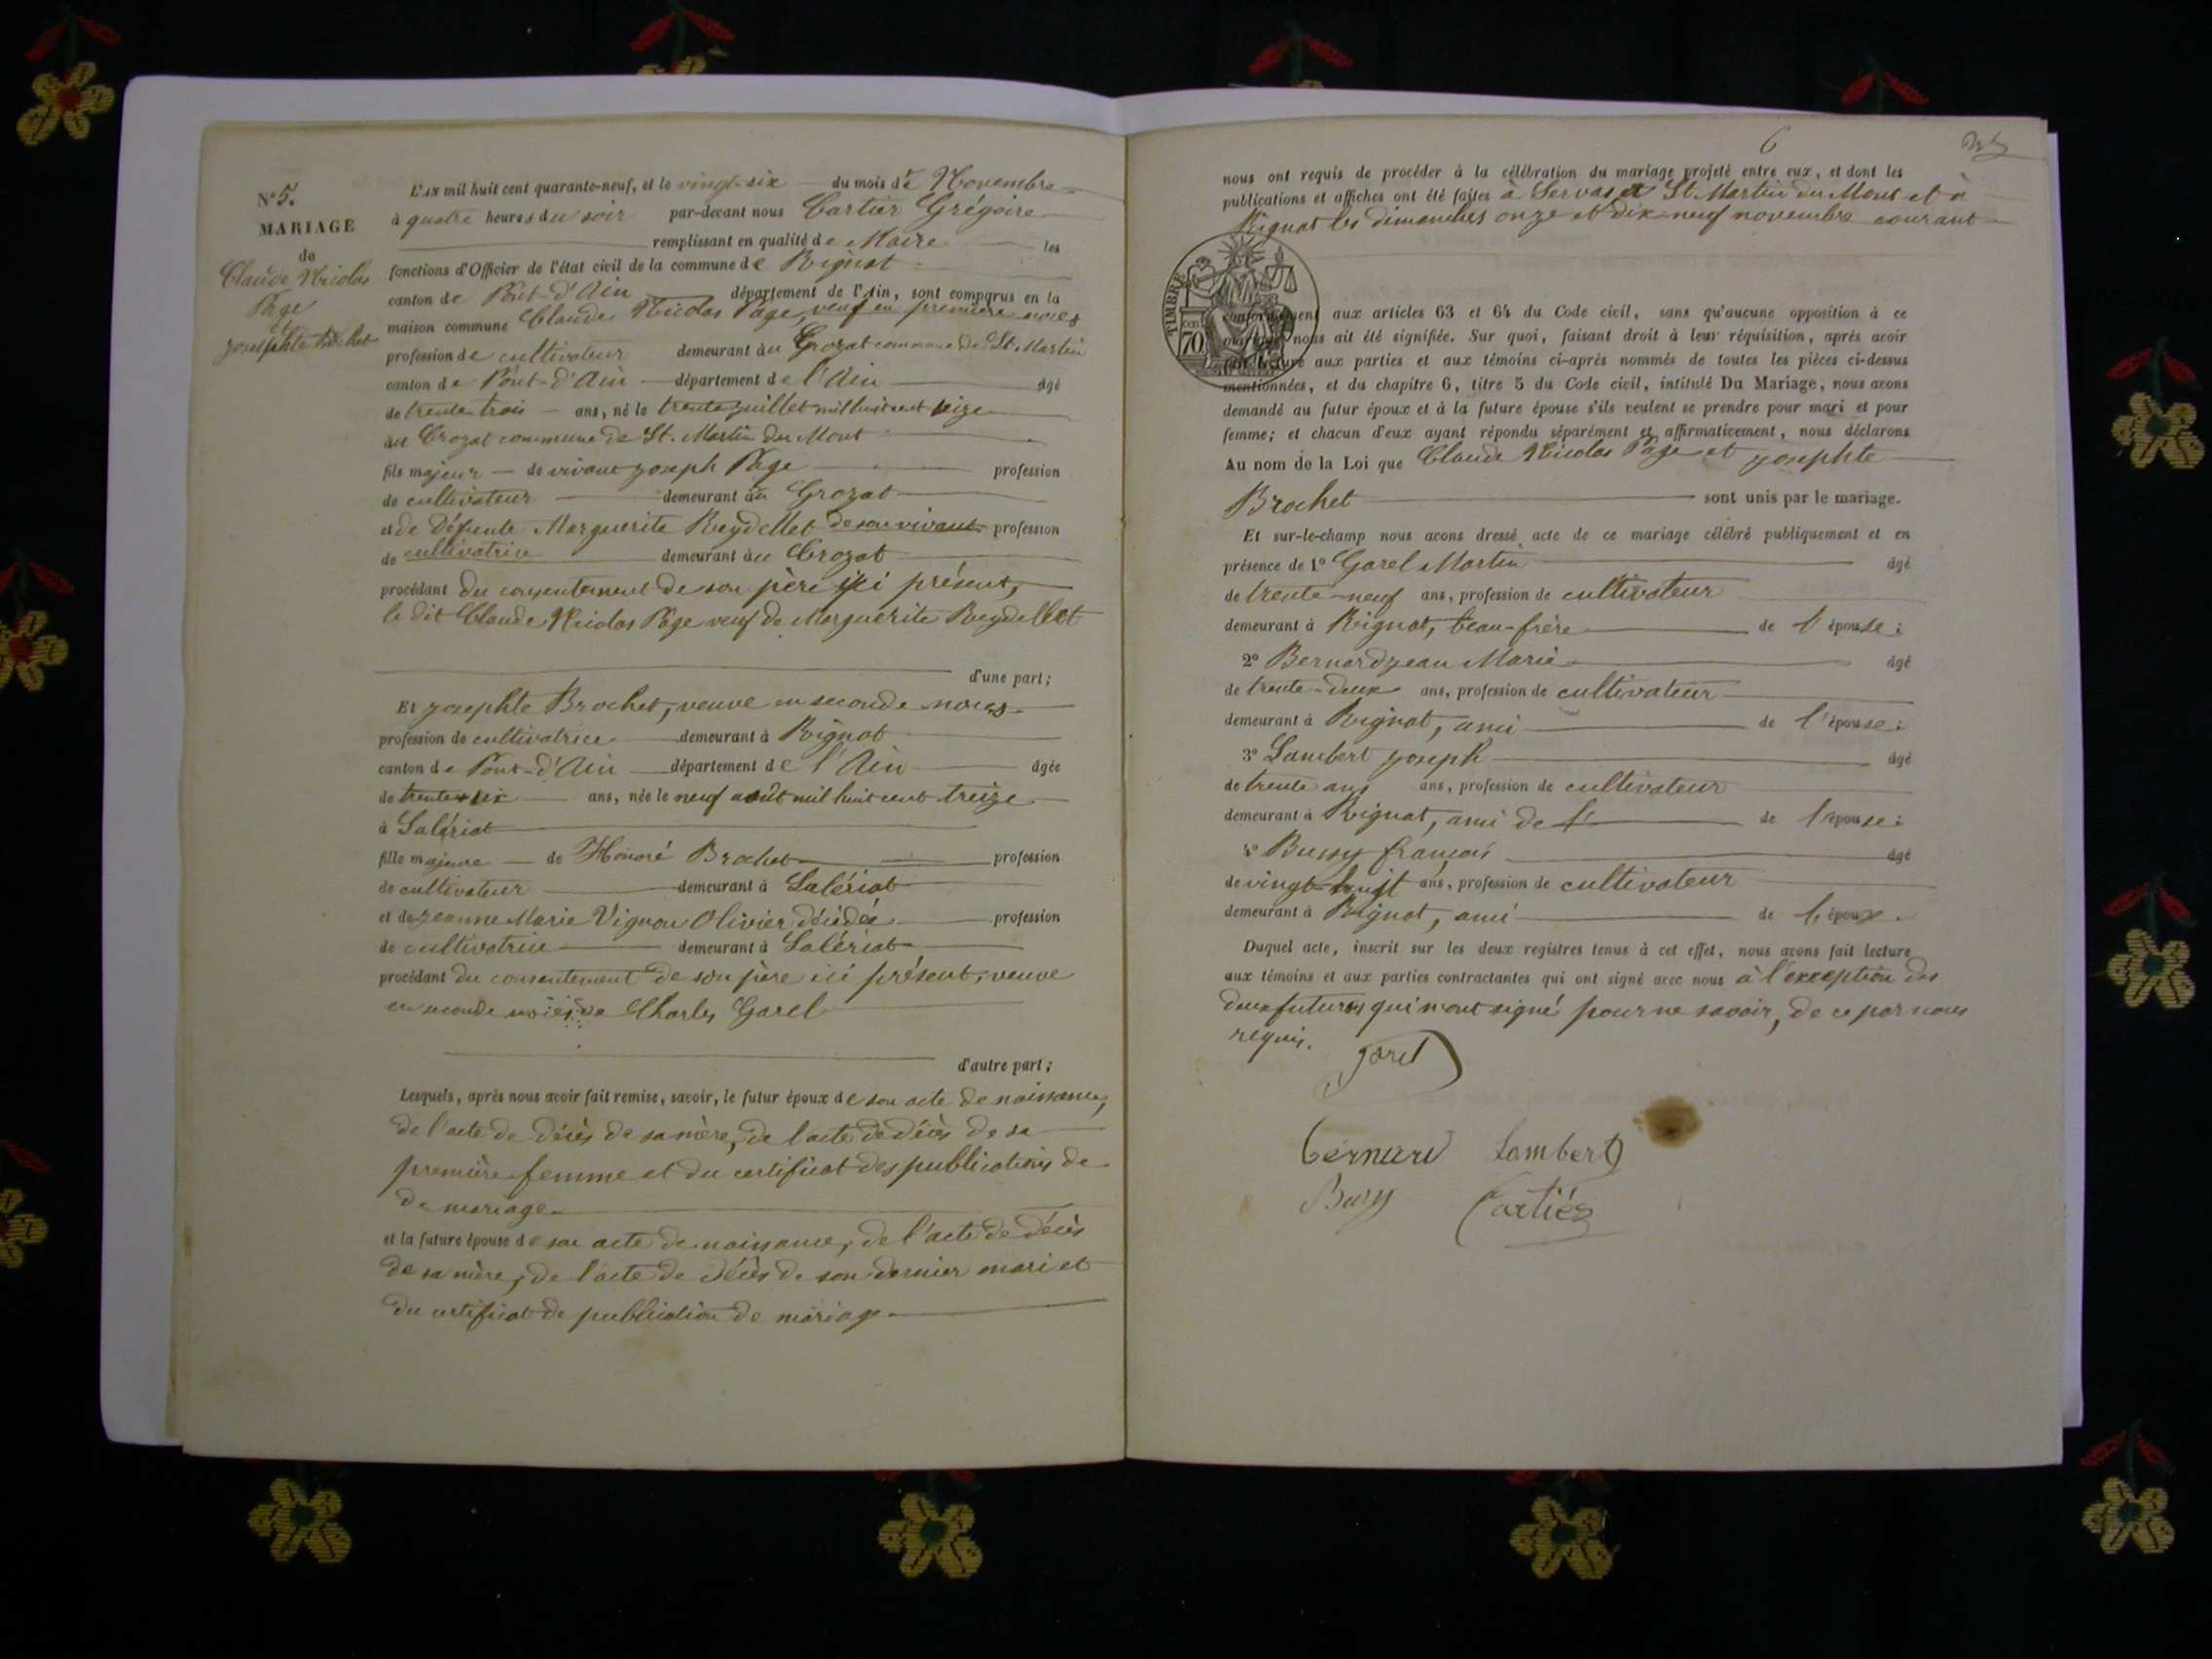 N° 5.
MARIAGE
de
Claude Nicolas
Page
et
Josephte Brochet
L'AN mil huit cent quarante-neuf, et le vingt-six du mois de Novembre
à quatre heures du soir par-devant nous Cartier Grégoire
remplissant en qualité de Maire les
fonctions d'Officier de l'état civil de la commune de Rignat
canton de Pont-d'Ain département de l'Ain, sont comparus en la
maison commune Claude Nicolas Page, veuf en première noces
profession de cultivateur demeurant au Crozat commune de St. Martin
canton de Pont-d'Ain département de l'Ain âgé
de trente trois ans, né le trente juillet mil huit cent seize
au Crozat commune de St. Martin du Mont
fils majeur de vivant Joseph Page profession
de cultivateur demeurant au Crozat
et de défunte Marguerite Reydellet de son vivant profession
de cultivatrice demeurant au Crozat
procédant du consentement de son père ici présent,
le dit Claude Nicolas Page veuf de Marguerite Reydellet
d'une part;
Et Josephte Brochet, veuve en seconde noces
profession de cultivatrice demeurant à Rignat
canton de Pont-d'Ain département de l'Ain âgée
de trente six ans, née le neuf août mil huit cent treize
à Salériat
fille majeure de Honoré Brochet profession
de cultivateur demeurant à Salériat
et de Jeanne Marie Vignon Olivier décédée profession
de cultivatrice demeurant à Salériat
procédant du consentement de son père ici présent, veuve
en seconde noces de Charles Garel
d'autre part;
Lesquels, après nous avoir fait remise, savoir, le futur époux de son acte de naissance,
de l'acte de décès de sa mère, de l'acte de décès de sa
première femme et du certificat des publications de
de mariage
et la future épouse de son acte de naissance, de l'acte de décès
de sa mère, de l'acte de décès de son dernier mari et
du certificat de publication de mariage
6
nous ont requis de procéder à la célébration du mariage projeté entre eux, et dont les
publications et affiches ont été faites à Servas à St. Martin du Mont et à
Rignat les dimanches onze et dix-neuf novembre courant
TIMBRE
70
conformément aux articles 63 et 64 du Code civil, sans qu'aucune opposition à ce
mariage nous ait été signifiée. Sur quoi, faisant droit à leur réquisition, après avoir
fait lecture aux parties et aux témoins ci-après nommés de toutes les pièces ci-dessus
mentionnées, et du chapitre 6, titre 5 du Code civil, intitulé Du Mariage, nous avons
demandé au futur époux et à la future épouse s'ils veulent se prendre pour mari et pour
femme; et chacun d'eux ayant répondu séparément et affirmativement, nous déclarons
Au nom de la Loi que Claude Nicolas Page et Josephte
Brochet sont unis par le mariage.
Et sur-le-champ nous avons dressé acte de ce mariage célébré publiquement et en
présence de 1° Garel Martin âgé
de trente-neuf ans, profession de cultivateur
demeurant à Rignat, beau-frère de l'épouse:
2° Bernard Jean Marie âgé
de trente-deux ans, profession de cultivateur
demeurant à Rignat, ami de l'épouse:
3° Lambert Joseph âgé
de trente ans ans, profession de cultivateur
demeurant à Rignat, ami de l' de l'épouse:
4° Bussy françois âgé
de vingt-huit ans, profession de cultivateur
demeurant à Rignat, ami de l'époux.
Duquel acte, inscrit sur les deux registres tenus à cet effet, nous avons fait lecture
aux témoins et aux parties contractantes qui ont signé avec nous à l'exception des
deux futures qui n'ont signé pour ne savoir, de ce par nous
requis.
Garel
bernard Lambert
Busy Cartier